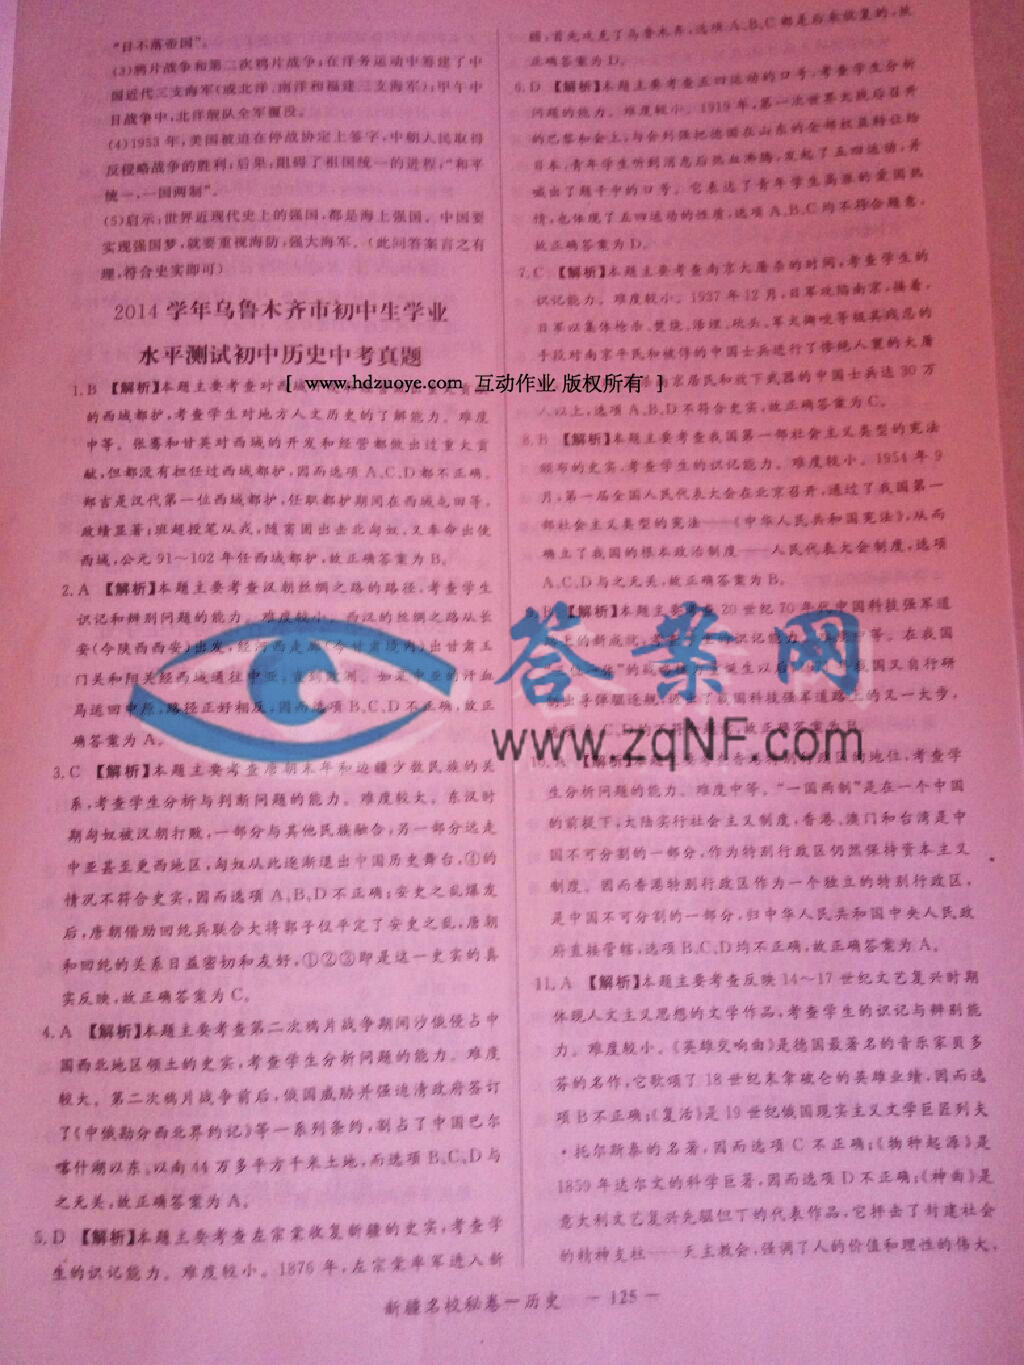 “日不落帝国”。
(3)鸦片战争和第二次鸦片战争;在洋务运动中筹建了中
国近代三支海军(或北洋、南洋和福建三支海军);甲午中
日战争中,北洋舰队全军覆没。
(4)1953年,美国被迫在停战协定上签字,中朝人民取得
反侵略战争的胜利;后果:阻碍了祖国统一的进程;“和平
统一、一国两制”。
(5)启示:世界近现代史上的强国,都是海上强国。中国要
实现强国梦,就要重视海防,强大海军。(此问答案言之有
理,符合史实即可)
2014学年乌鲁木齐市初中生学业
水平测试初中历史中考真题
1.B 【解析】本题主要考查对西域
的西域都护,考查学生对地方人文历史的了解能力。难度
中等。张骞和甘英对西域的开发和经营都做出过重大贡
献,但都没有担任过西域都护,因而选项A、C、D都不正确。
郑吉是汉代第一位西域都护,任职都护期间在西域屯田等,
政绩显著;班超投笔从戎,随窦固出击北匈奴,又奉命出使
西域,公元91～102年任西域都护,故正确答案为B。
2.A 【解析】本题主要考查汉朝丝绸之路的路径,考查学生
识记和辨别问题的能力。难度较小。西汉的丝绸之路从长
安(今陕西西安)出发,经河西走廊(今甘肃境内)出甘肃玉
门关和阳关经西域通往中亚,直到欧洲。如果中亚的汗血
马运回中原,路径正好相反,因而选项B、C、D不正确,故正
确答案为A。
3.C 【解析】本题主要考查唐朝末年和边疆少数民族的关
系,考查学生分析与判断问题的能力。难度较大。东汉时
期匈奴被汉朝打败,一部分与其他民族融合,另一部分远走
中亚甚至更西地区,匈奴从此逐渐退出中国历史舞台,④的
情况不符合史实,因而选项A、B、D不正确;安史之乱爆发
后,唐朝借助回纥兵联合大将郭子仪平定了安史之乱,唐朝
和回纥的关系日益密切和友好,①②③即是这一史实的真
实反映,故正确答案为C。
4.A 【解析】本题主要考查第二次鸦片战争期间沙俄侵占中
国西北地区领土的史实,考查学生分析问题的能力。难度
较大。第二次鸦片战争前后,俄国威胁并强迫清政府签订
了《中俄勘分西北界约记》等一系列条约,割占了中国巴尔
喀什湖以东、以南44万多平方千米土地,而选项B、C、D与
之无关,故正确答案为A。
5.D 【解析】本题主要考查左宗棠收复新疆的史实,考查学
生的识记能力。难度较小。1876年,左宗棠率军进入新
疆,首先攻克了乌鲁木齐,选项A、B、C都是后来收复的,故
正确答案为D。
6.D 【解析】本题主要考查五四运动的口号,考查学生分析
问题的能力。难度较小。1919年,第一次世界大战后召开
的巴黎和会上,与会列强把德国在山东的全部权益转让给
日本,青年学生听到消息后热血沸腾,发起了五四运动,并
喊出了题干中的口号。它表达了青年学生高涨的爱国热
情,也体现了五四运动的性质,选项A、B、C均不符合题意,
故正确答案为D。
7.C 【解析】本题主要考查南京大屠杀的时间,考查学生的
识记能力。难度较小。1937年12月,日军攻陷南京,接着,
日军以集体枪杀、焚烧、活埋、砍头、军犬撕咬等极其残忍的
手段对南京平民和被俘的中国士兵进行了惨绝人寰的大屠
杀南京居民和放下武器的中国士兵达30万
人以上,选项A、B、D不符合史实,故正确答案为C。
8.B 【解析】本题主要考查我国第一部社会主义类型的宪法
颁布的史实,考查学生的识记能力。难度较小。1954年9
月,第一届全国人民代表大会在北京召开,通过了我国第一
部社会主义类型的宪法——《中华人民共和国宪法》,从而
确立了我国的根本政治制度——人民代表大会制度,选项
A、C、D与之无关,故正确答案为B。
9.B 【解析】本题主要考查20世纪70年代中国科技强军道
路上的新成就,考查学生的识记能力。难度中等。在我国
的战略核力量诞生以后,我国又自行研
制出导弹驱逐舰,迈出了我国科技强军道路上的又一大步,
选项A、C、D均不符合史实,故正确答案为B。
10.A 【解析】本题主要考查香港特别行政区的地位,考查学
生分析问题的能力。难度中等。“一国两制”是在一个中国
的前提下,大陆实行社会主义制度,香港、澳门和台湾是中
国不可分割的一部分,作为特别行政区仍然保持资本主义
制度。因而香港特别行政区作为一个独立的特别行政区,
是中国不可分割的一部分,归中华人民共和国中央人民政
府直接管辖,选项B、C、D均不正确,故正确答案为A。
11.A 【解析】本题主要考查反映14～17世纪文艺复兴时期
体现人文主义思想的文学作品,考查学生的识记与辨别能
力。难度较小。《英雄交响曲》是德国最著名的音乐家贝多
芬的名作,它歌颂了18世纪末拿破仑的英雄业绩,因而选
项B不正确;《复活》是19世纪俄国现实主义文学巨匠列夫
·托尔斯泰的名著,因而选项C不正确;《物种起源》是
1859年达尔文的科学巨著,因而选项D不正确;《神曲》是
意大利文艺复兴先驱但丁的代表作品,它抨击了封建社会
的精神支柱——天主教会,强调了人的价值和理性的伟大,
[ www.hdzuoye.com 互动作业 版权所有 ]
答案网
www.zqNF.com
新疆名校秘卷—历史 — 125 —